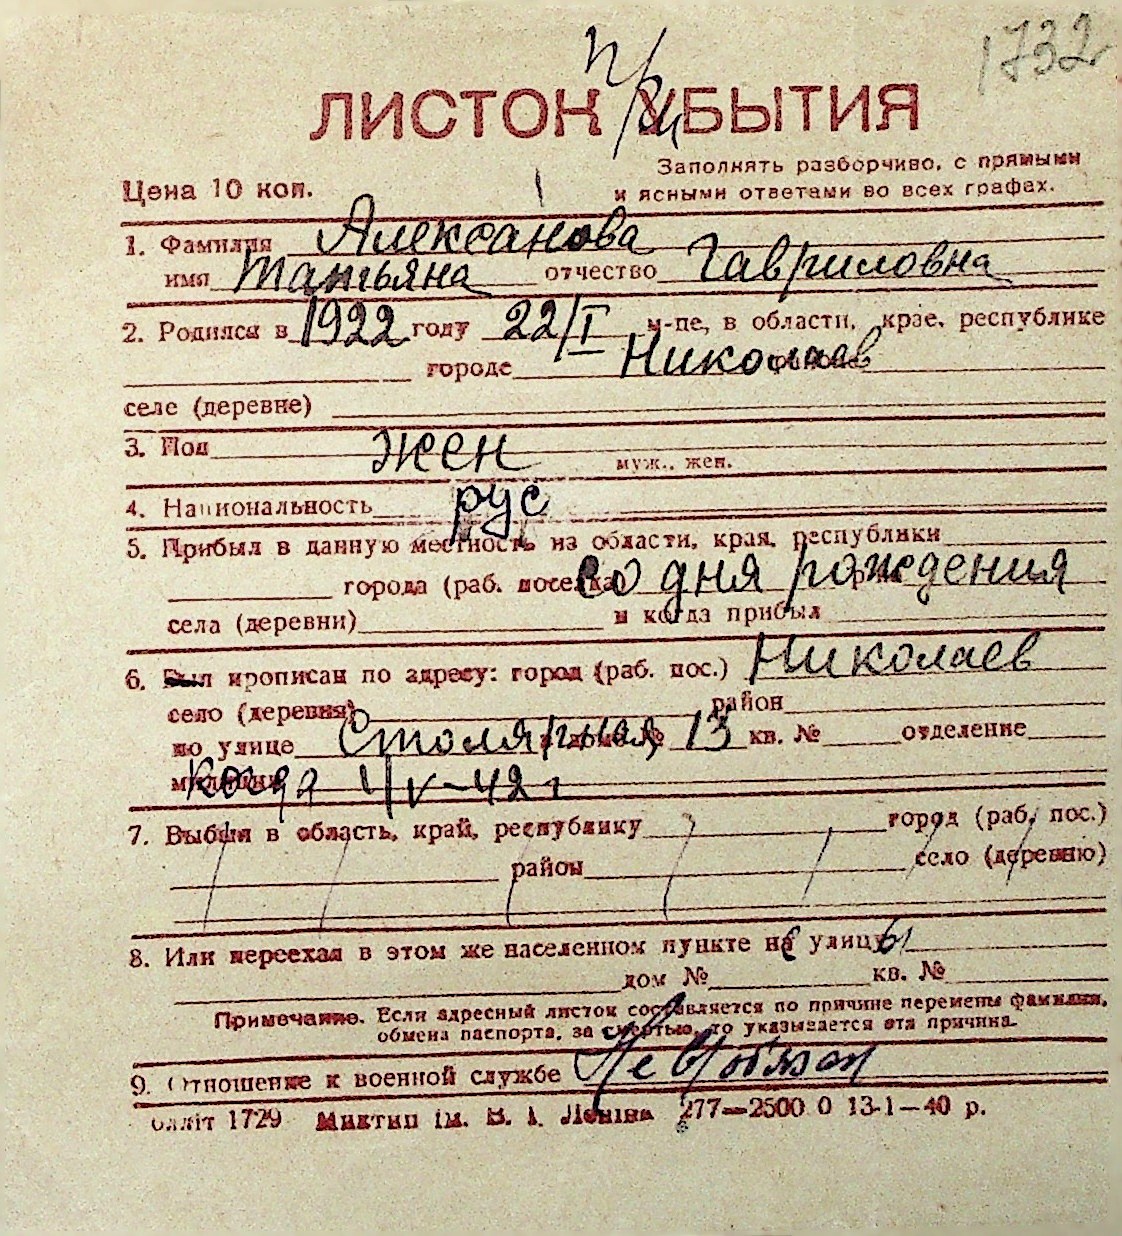 1732
При
ЛИСТОК УБЫТИЯ
Заполнять разборчиво, с прямыми
Цена 10 коп.
и ясными ответами во всех графах.
1. Фамилия Алексанова
имя Татьяна отчество Гавриловна
2. Родился в 1922 году 22/I м-це, в области, крае, республике
городе Николаев
селе (деревне)
3. Пол жен муж., жен.
4. Национальность рус
5. Прибыл в данную местность из области, края, республики
города (раб. поселка) со дня рождения
села (деревни) и когда прибыл
6. Был прописан по адресу: город (раб. пос.) Николаев
село (деревня) район
по улице Столярная, 13 кв. № отделение
милиции когда 4/V-42 г
7. Выбыл в область, край, республику город (раб. пос.)
район село (деревню)
8. Или переехал в этом же населенном пункте на улицу 61
дом № кв. №
Примечание. Если адресный листок составляется по причине перемены фамилии,
обмена паспорта, за смертью, то указывается эта причина.
9. Отношение к военной службе
олліт 1729 Миктип ім. В. І. Леніна 277—2500 0 13-1—40 р.